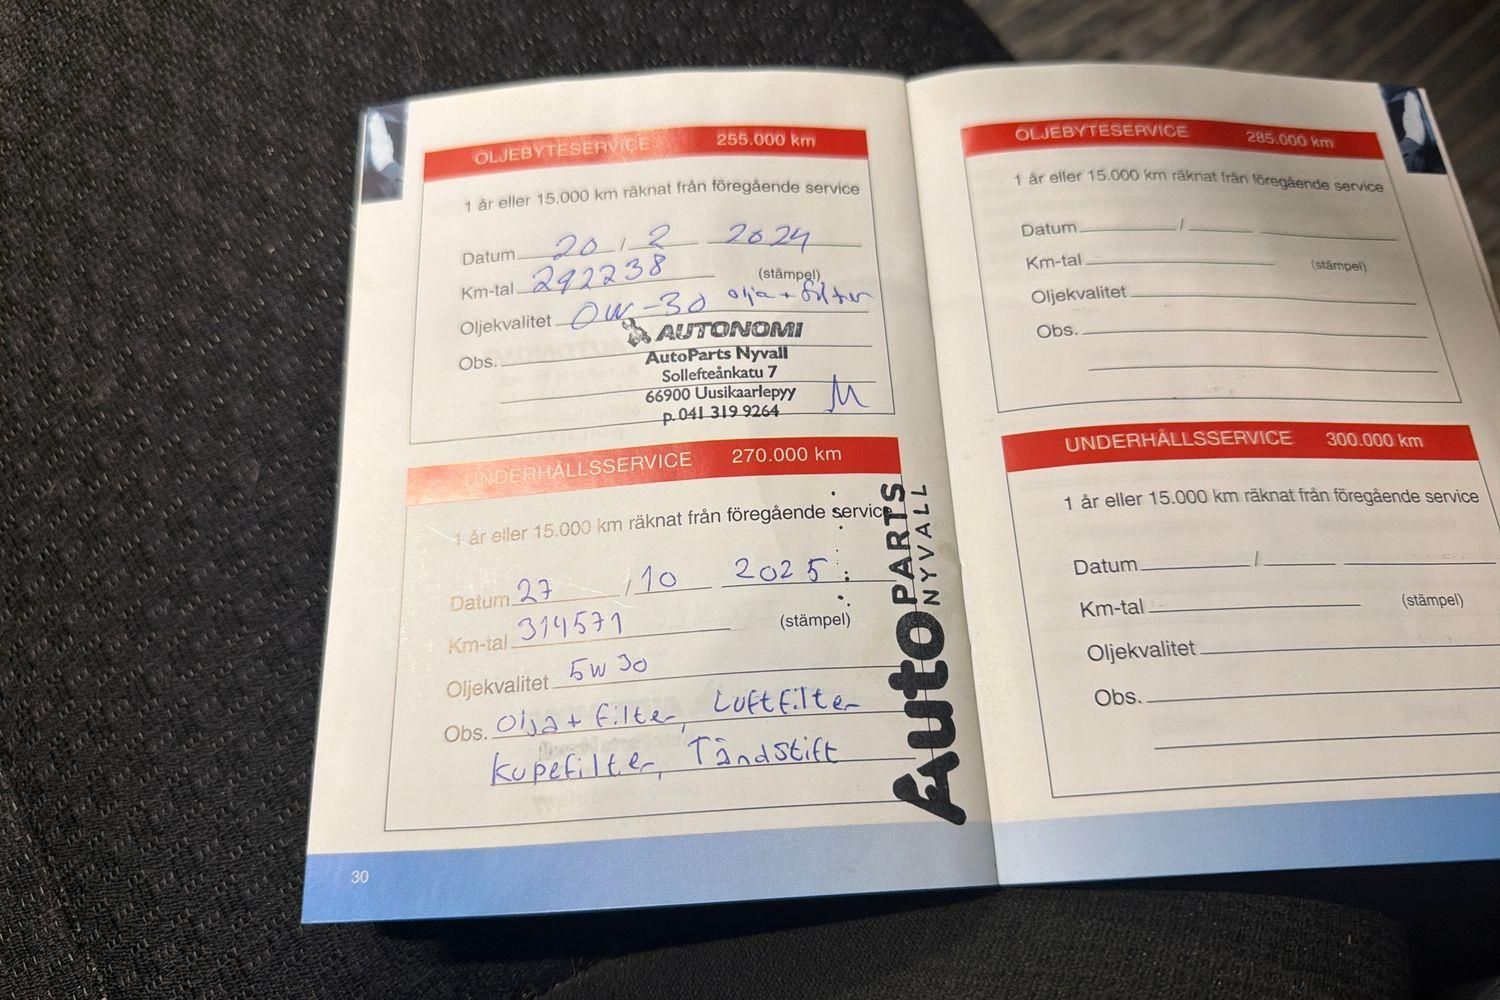 OLJEBYTESERVICE 255.000 km
1 år eller 15.000 km räknat från föregående service
Datum 20 / 2 2024
Km-tal 292238 (stämpel)
Oljekvalitet 0W-30 olja + filter
Obs.
AUTONOMI
AutoParts Nyvall
Sollefteånkatu 7
66900 Uusikaarlepyy
p. 041 319 9264
UNDERHÅLLSSERVICE 270.000 km
1 år eller 15.000 km räknat från föregående service
Datum 27 / 10 2025
Km-tal 314571 (stämpel)
Oljekvalitet 5W30
Obs. Olja + filter, Luftfilter
Kupefilter, Tändstift
AutoPARTS
NYVALL
30
OLJEBYTESERVICE 285.000 km
1 år eller 15.000 km räknat från föregående service
Datum /
Km-tal (stämpel)
Oljekvalitet
Obs.
UNDERHÅLLSSERVICE 300.000 km
1 år eller 15.000 km räknat från föregående service
Datum /
Km-tal (stämpel)
Oljekvalitet
Obs.